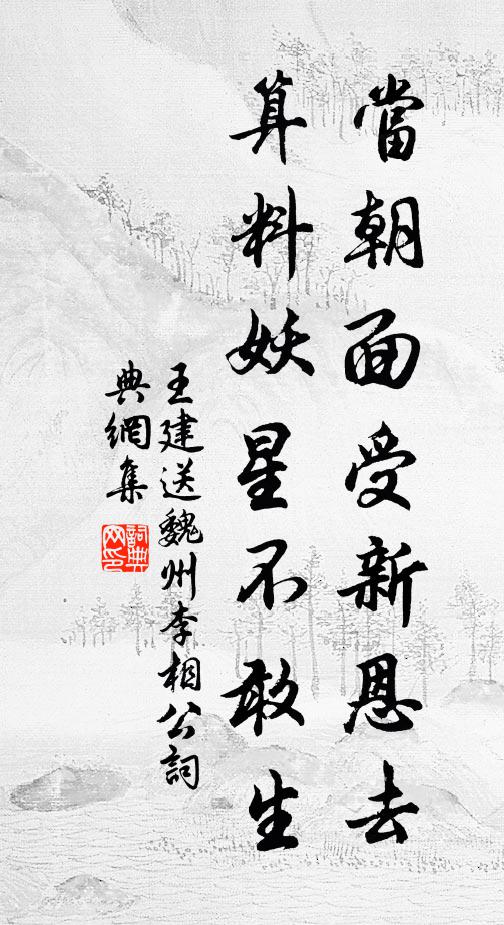 當朝面受新恩去
算料妖星不敢生
王建送魏州李相公詞
典網集
詞典網印